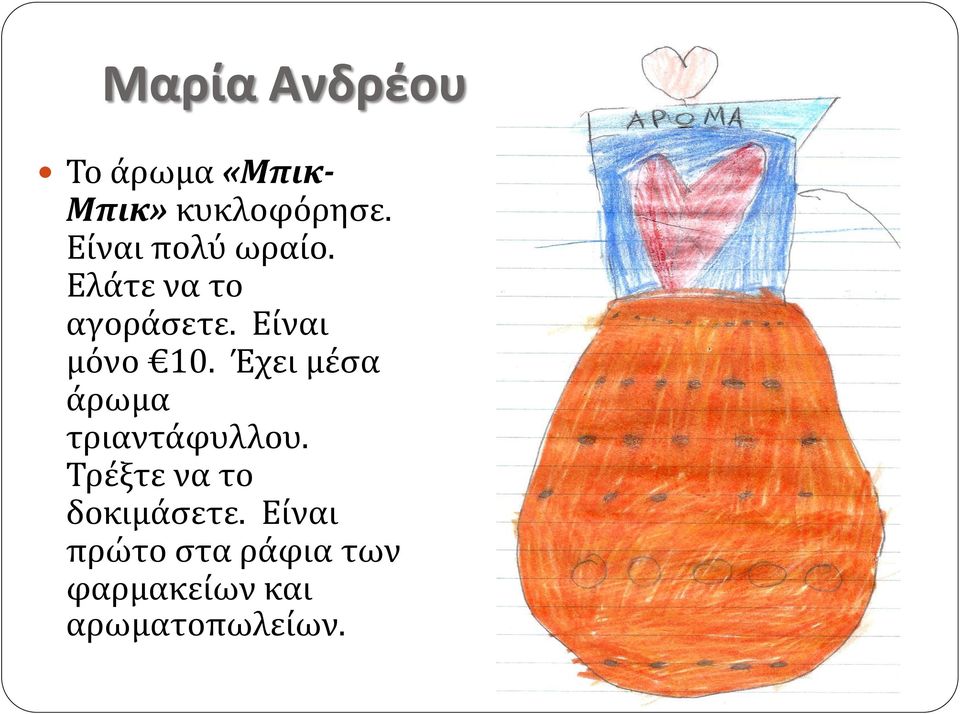 Μαρία Ανδρέου
ΑΡΩΜΑ
• Το άρωμα «Μπικ-
Μπικ» κυκλοφόρησε.
Είναι πολύ ωραίο.
Ελάτε να το
αγοράσετε. Είναι
μόνο €10. Έχει μέσα
άρωμα
τριαντάφυλλου.
Τρέξτε να το
δοκιμάσετε. Είναι
πρώτο στα ράφια των
φαρμακείων και
αρωματοπωλείων.